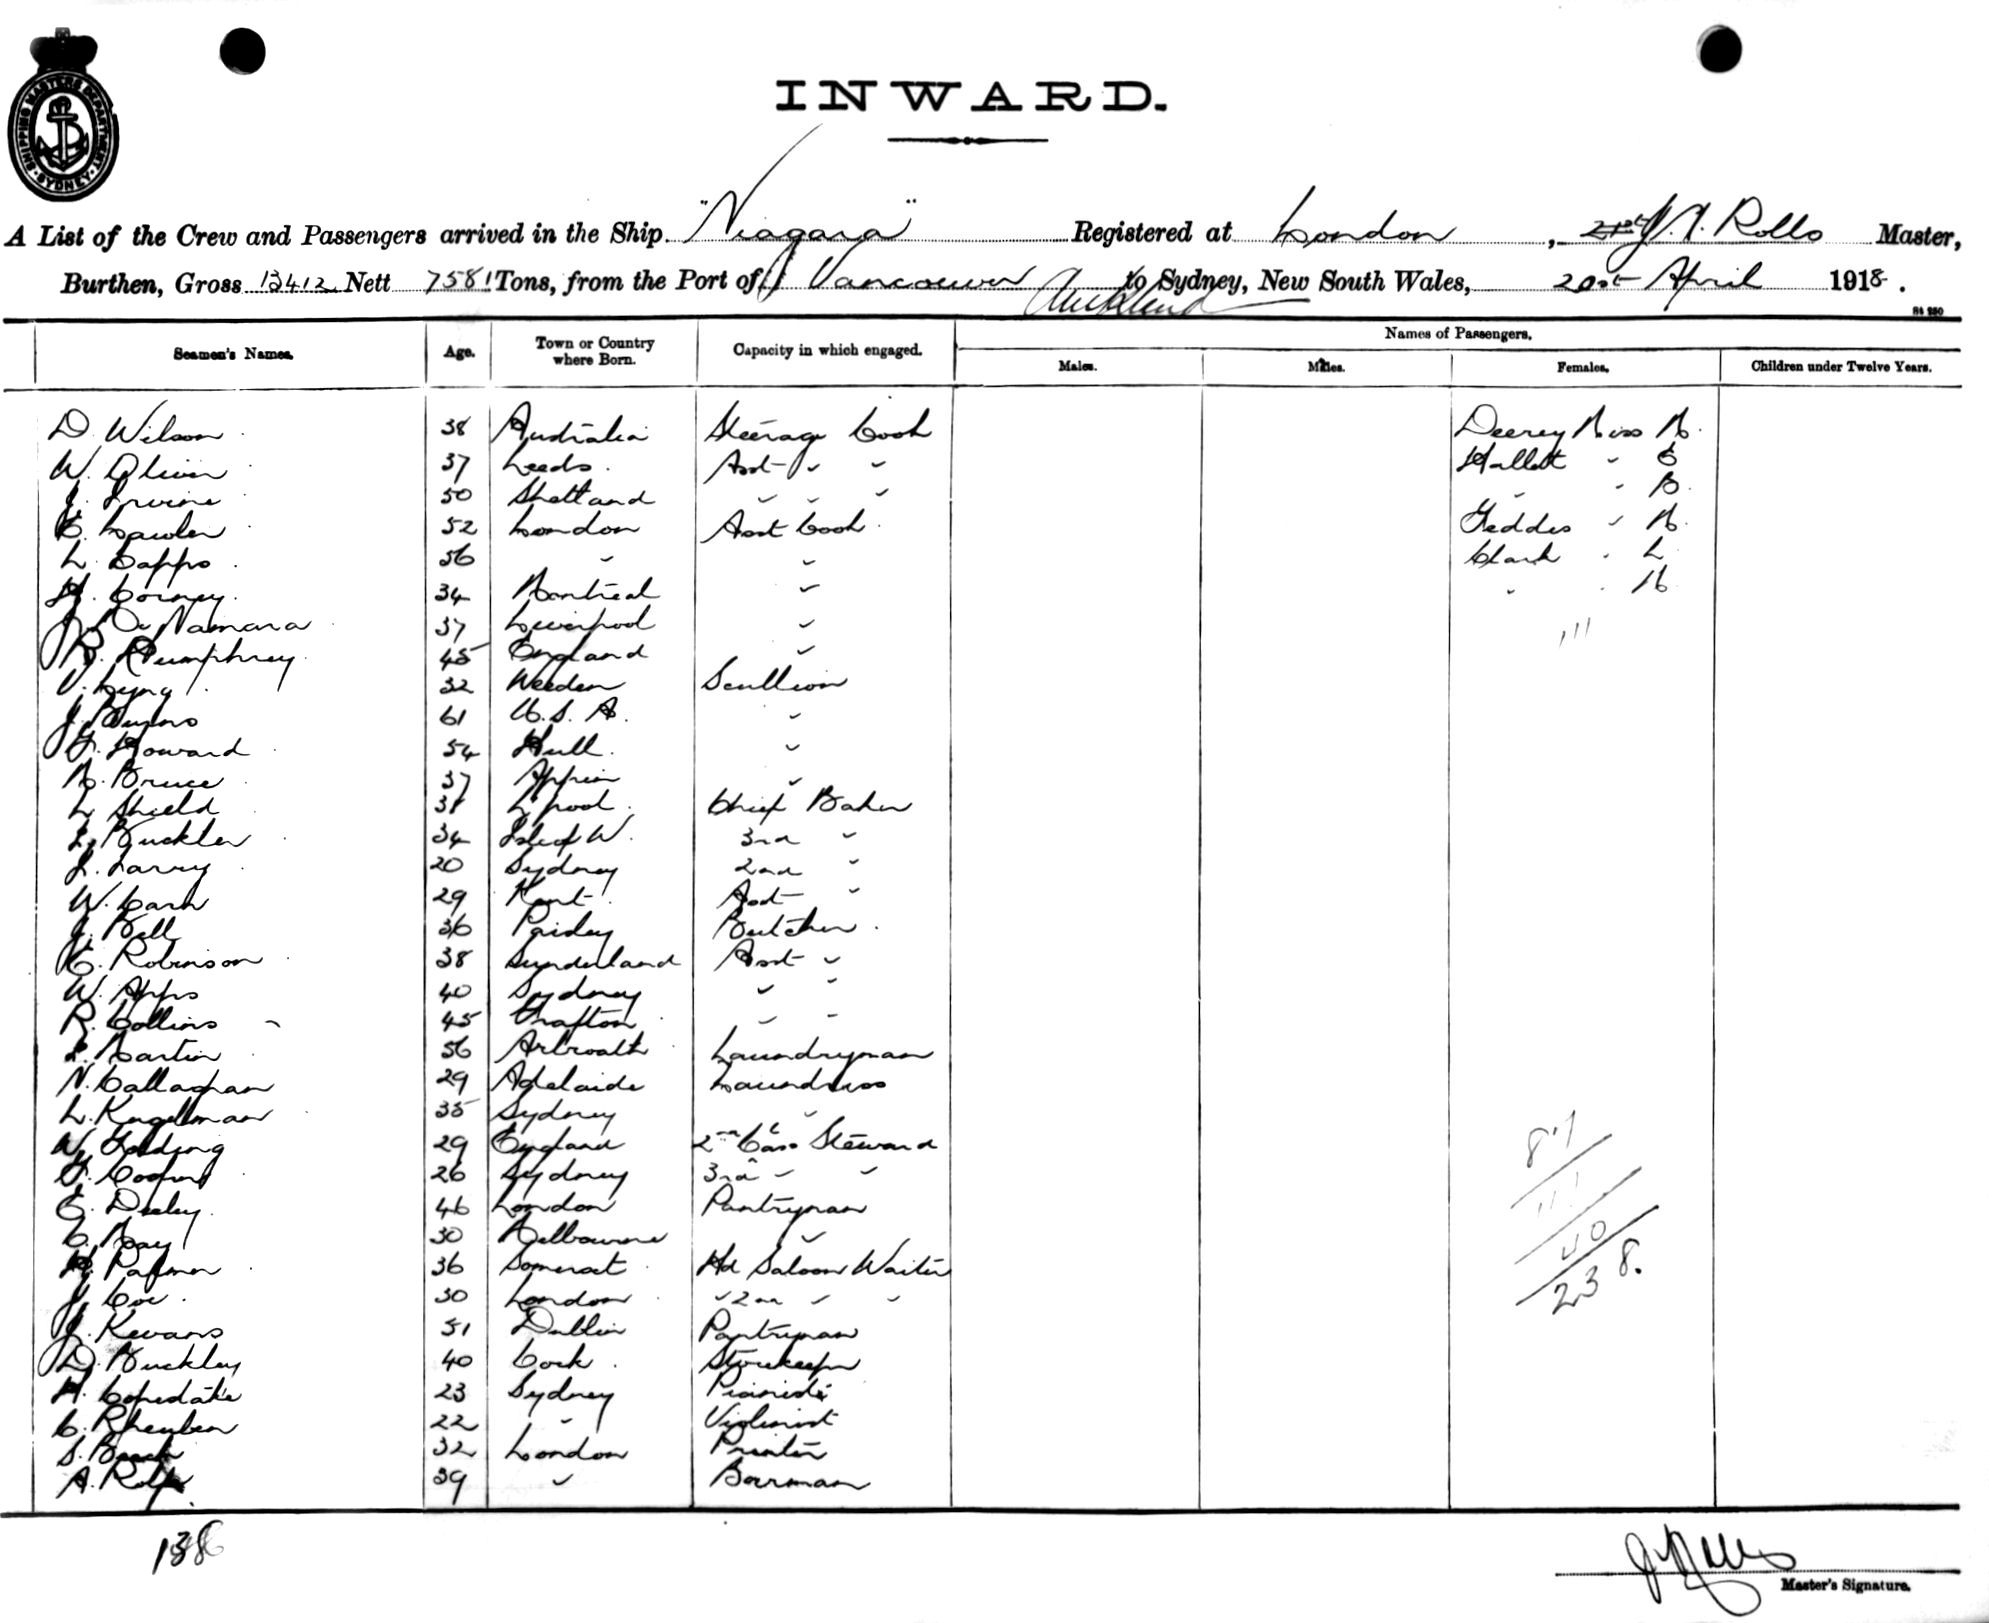 SHIPPING MASTERS DEPARTMENT. SYDNEY.
INWARD.
A List of the Crew and Passengers arrived in the Ship "Niagara" Registered at London, Rolls Master,
Burthen, Gross 13412 Nett 7581 Tons, from the Port of Vancouver Auckland to Sydney, New South Wales, 20st April 1918.
Names of Passengers.
Seamen's Names. Age. Town or Country where Born. Capacity in which engaged. Males. Males. Females. Children under Twelve Years.
D. Wilson 38 Australia Steerage Cook Deerey Miss M.
W. Oliver 37 Leeds. Asst " " Hallett " E
J. Irvine 50 Shetland " " " " " B.
C. Lawler 52 London Asst Cook. Geddes " M.
L. Capps. 56 " " Clark " L
H. Corney. 34 Montreal " " " M
J. McNamara 37 Liverpool "
R. Humphrey. 45 England "
V. Lyng 32 Weedon Scullion
J. Burns 61 U.S.A. "
F. Howard 54 Hull. "
M. Bruce 37 Appin "
L Shield L'pool. Chief Baker
L. Buckler 34 Isle of W. 3rd "
J. Larry 20 Sydney 2nd "
W. Cash 29 Kent. Asst "
J. Bell 36 Paisley Butcher.
C. Robinson 38 Sunderland Asst "
W. Apps 40 Sydney " "
R. Collins 45 Grafton " "
L. Martin 56 Arbroath Laundryman
N. Callaghan 29 Adelaide Laundress
L. Kugelman 35 Sydney "
W. Golding 29 England 2nd Class Steward
F. Cooper 26 Sydney 3rd " "
E. Deeley. 46 London Pantryman
C. May 30 Melbourne "
H. Palmer 36 Somerset Hd Saloon Waiter
J. Coe. 30 London " 2nd " "
J. Kevans 51 Dublin Pantryman
D. Buckley 40 Cork. Storekeeper
H. Copedate 23 Sydney Pianist
C. Rheuben 22 " Violinist
S. 32 London Printer
A. Rolfe 39 " Barman
87
111
40
238.
138
Master's Signature.